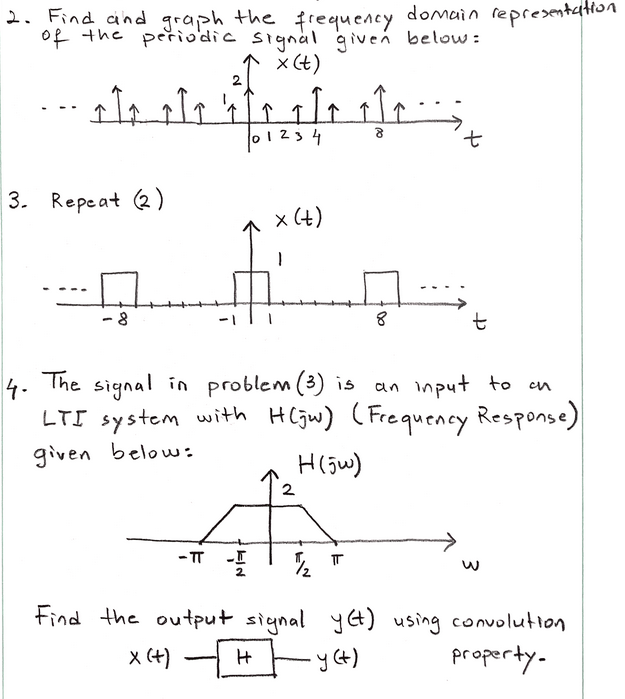 2. Find and graph the frequency domain representation
of the periodic signal given below:
x(t)
2
1
0 1 2 3 4 8 t
3. Repeat (2)
x(t)
1
-8 -1 1 8 t
4. The signal in problem (3) is an input to an
LTI system with H(jw) (Frequency Response)
given below:
H(jw)
2
-π -π/2 π/2 π w
Find the output signal y(t) using convolution
x(t) H y(t) property.